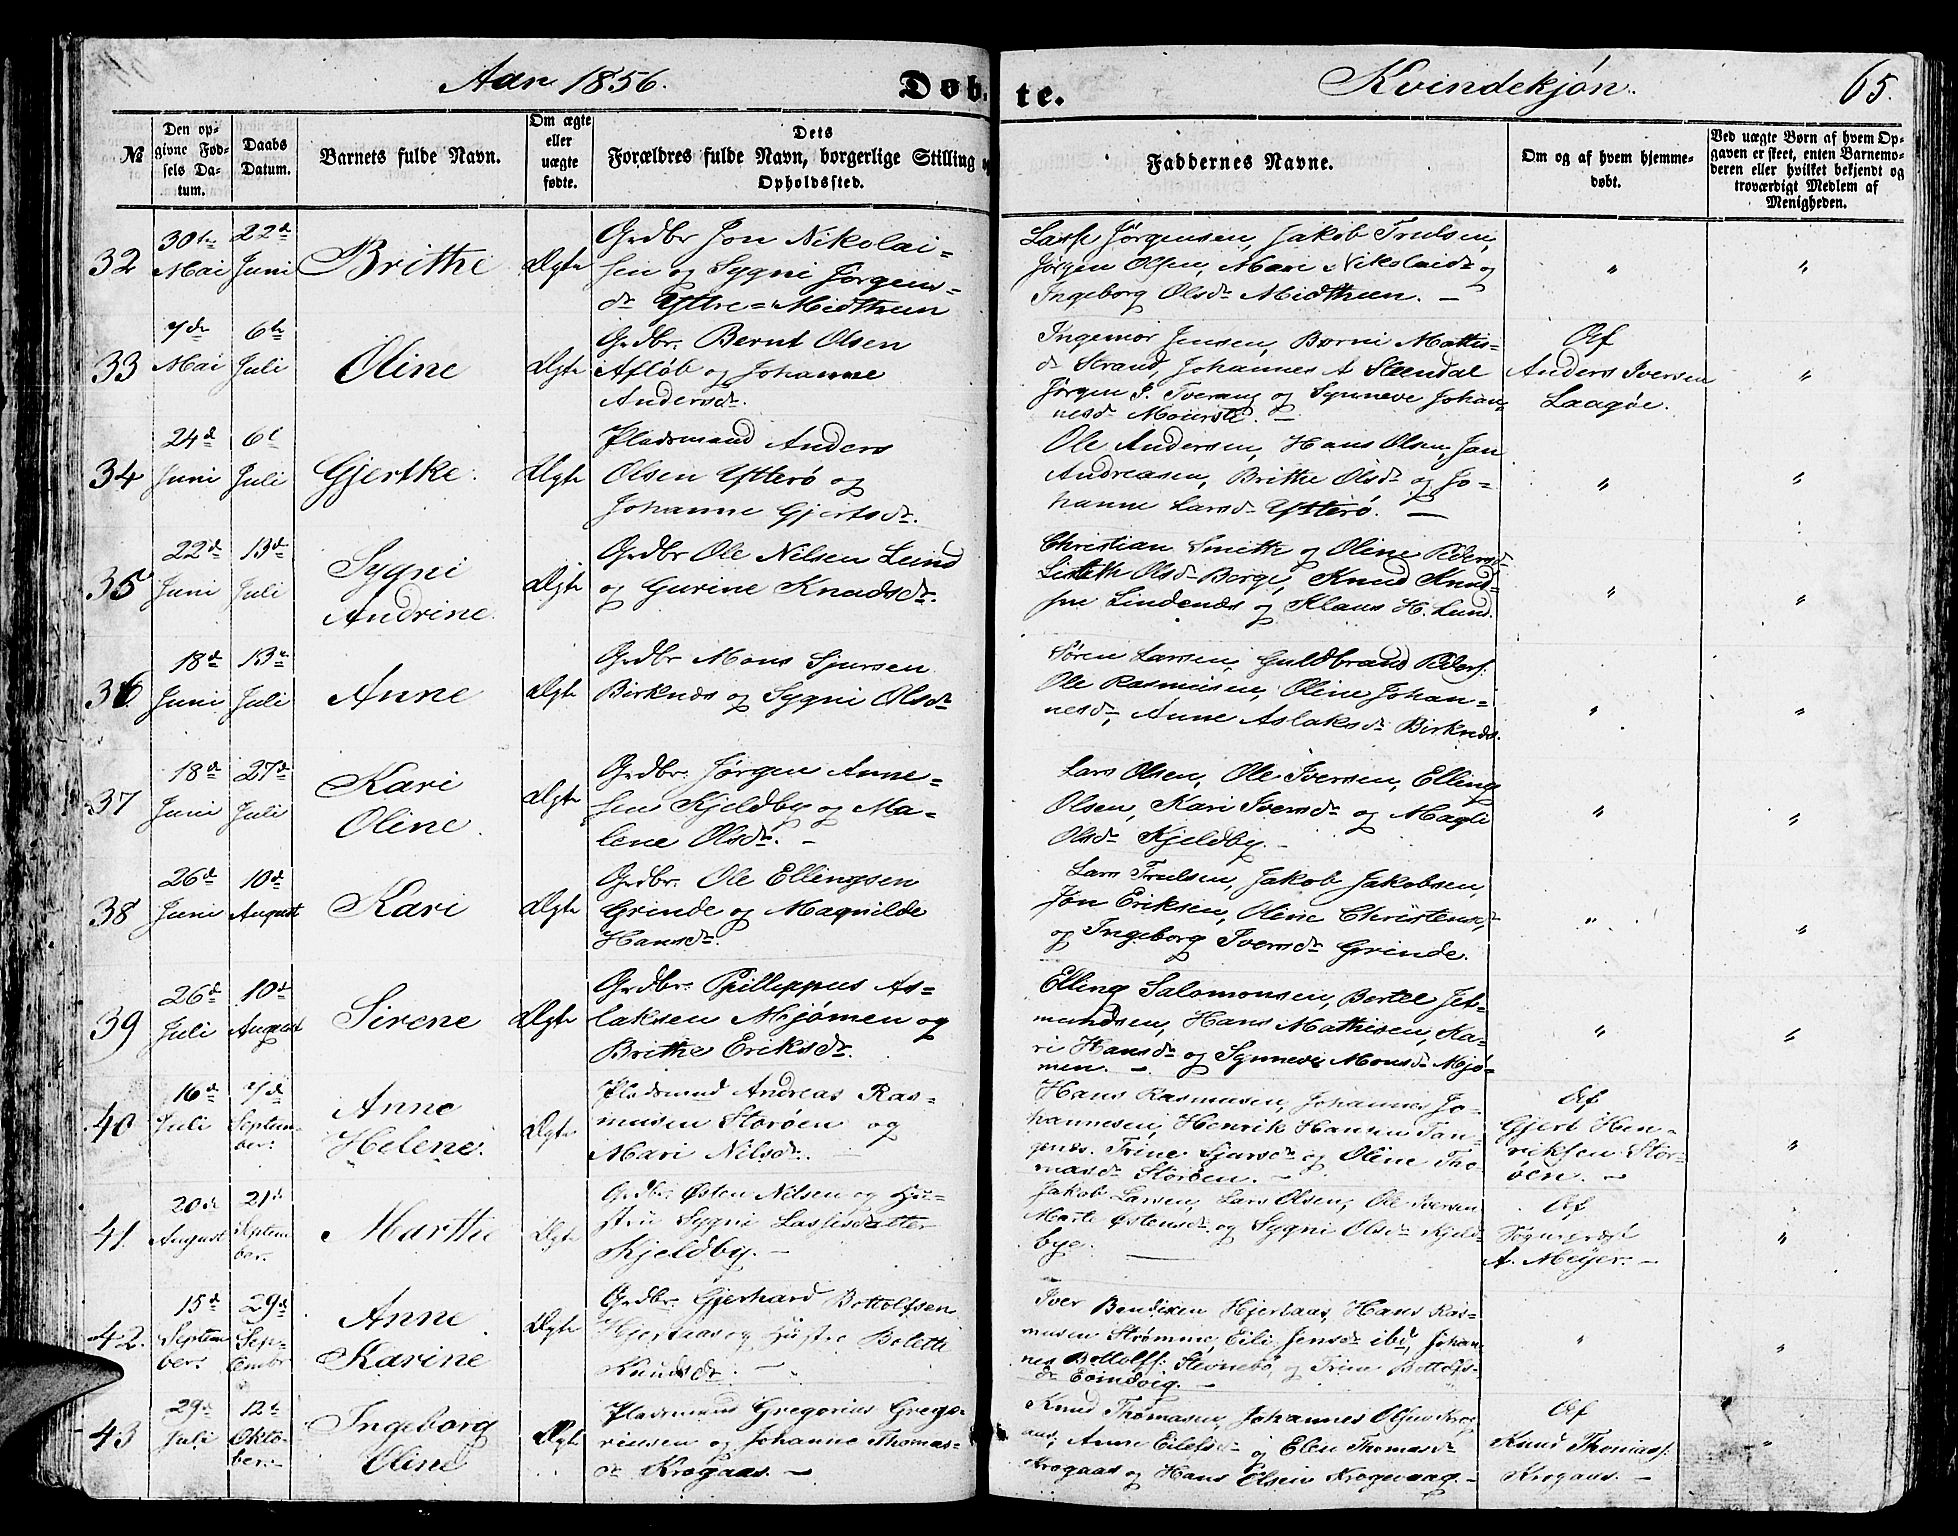 Aar 1856. Døbte. Kvindekjøn. 65.
№ Den opgivne Fødsels Datum. Daabs Datum. Barnets fulde Navn. Om ægte eller uægte fødte. Dets Forældres fulde Navn, borgerlige Stilling og Opholdssted. Faddernes Navne. Om og af hvem hjemmedøbt. Ved uægte Børn af hvem Opgaven er skeet, enten Barnemoderen eller hvilket bekjendt og troværdigt Medlem af Menigheden.
32 30te Mai 22de Juni Brithe Ægte
Grdbr Jon Nikolai=
sen og Sygni Jørgens=
dr Yttre=Midthun
Lasse Jørgensen, Jakob Trulsen,
Jørgen Olsen, Mari Nikolaidr og
Ingeborg Olsdr Midthun. — " "
33 7de Mai 6te Juli Oline Ægte
Grdbr. Bernt Olsen
Afløb og Johanne
Andersdr.
Ingemor Jensen, Børni Mattis=
dr Strand, Johannes A Steendal
Jørgen P. Tverang og Synneve Johan=
nesdr —
Af
Anders Iversen
Laagøe. "
34 24de Juni 6te Juli Gjertke. Ægte
Pladsmand Anders
Olsen Ytterø og
Johanne Gjertsdr.
Ole Andersen, Hans Olsen, Jan
Andreasen, Brithe Olsdr og Jo=
hanne Larsdr Ytterø. — " "
35 22de Juni 13de Juli Sygni Andrine. Ægte
Grdbr Ole Nilsen Leind
og Gurine Knudsdr.
Christian Smith og Oline Pedersdr
Lisbeth Olsdr Berge, Knud Knud=
sen Lindenæs og Klaus H. Lund. " "
36 18de Juni 13de Juli Anne Ægte
Grdbr Mons Sjursen
Birknæs og Sygni Olsdr
Søren Larsen, Guldbrand Peders:
Ole Rasmusen, Oline Johan=
nesdr, Anne Aslaksdr Birknæs. " "
37 18de Juni 27de Juli Kari Oline. Ægte
Grdbr. Jørgen Anne=
sen Kjeldby og Ma=
lene Olsdr. —
Lars Olsen, Ole Iversen, Elling
Olsen, Kari Iversdr og Magli
Olsdr Kjeldby. — " "
38 26de Juni 10de August Kari Ægte
Grdbr. Ole Ellingsen
Grinde og Magnilde
Hansdr.
Lars Trulsen, Jakob Jakobsen,
Jon Eriksen, Oline Christensdr
og Ingeborg Iversdr Grinde. " "
39 26de Juli 10de August Sirene Ægte
Grdbr. Pillippus As=
laksen Mjømen og
Brithe Eriksdr.
Elling Salomonsen, Bertel Jet=
mundsen, Hans Mathisen, Ka=
ri Hansdr og Synnevi Monsdr Mjø=
men. — " "
40 16de Juli 7de September. Anne Helene. Ægte
Pladsmand Andreas Ras=
musen Storøen og
Mari Nilsdr. —
Hans Rasmusen, Johannes Jo=
hannesen, Henrik Hansen Tan=
genes. Trine Sjursdr og Oline Tho
masdr Storøen. —
Af
Gjert Hen=
riksen Stor=
øen. — "
41. 20de August 21de September. Marthe Ægte
Grdbr. Østen Nilsen og Hu=
stru Sygni Lassesdatter
Kjeldby. —
Jakob Larsen, Lars Olsen, Ole Iversen
Marte Østensdr og Sygni Olsdr Kjeld=
bye. —
Af
Sognepræst
A. Meyer. — "
42. 15de September. 29de September Anne Karine Ægte
Grdbr. Gjerhard Bottolfsen
Hjertaas og Hustru Bolette
Knudsdr. —
Iver Bendixen Hjertaas, Hans Ras=
musen Strømme, Eili Jensdr ibd, Johan
nes Bottolfs: Stevnebø, og Trine Bottolfs=
dr Evindvig. — " "
43 29de Juli 12te Oktober. Ingeborg Oline Ægte
Pladsmand Gregorius Grego=
riusen og Johanne Thomas=
dr Krogaas. —
Knud Thomasen, Johannes Olsen Krog
aas, Anne Eilefsdr og Elen Thomasdr
Krogaas og Hans Olsen Krogevaag. —
Af
Knud Thomass:
Krogaas. — "